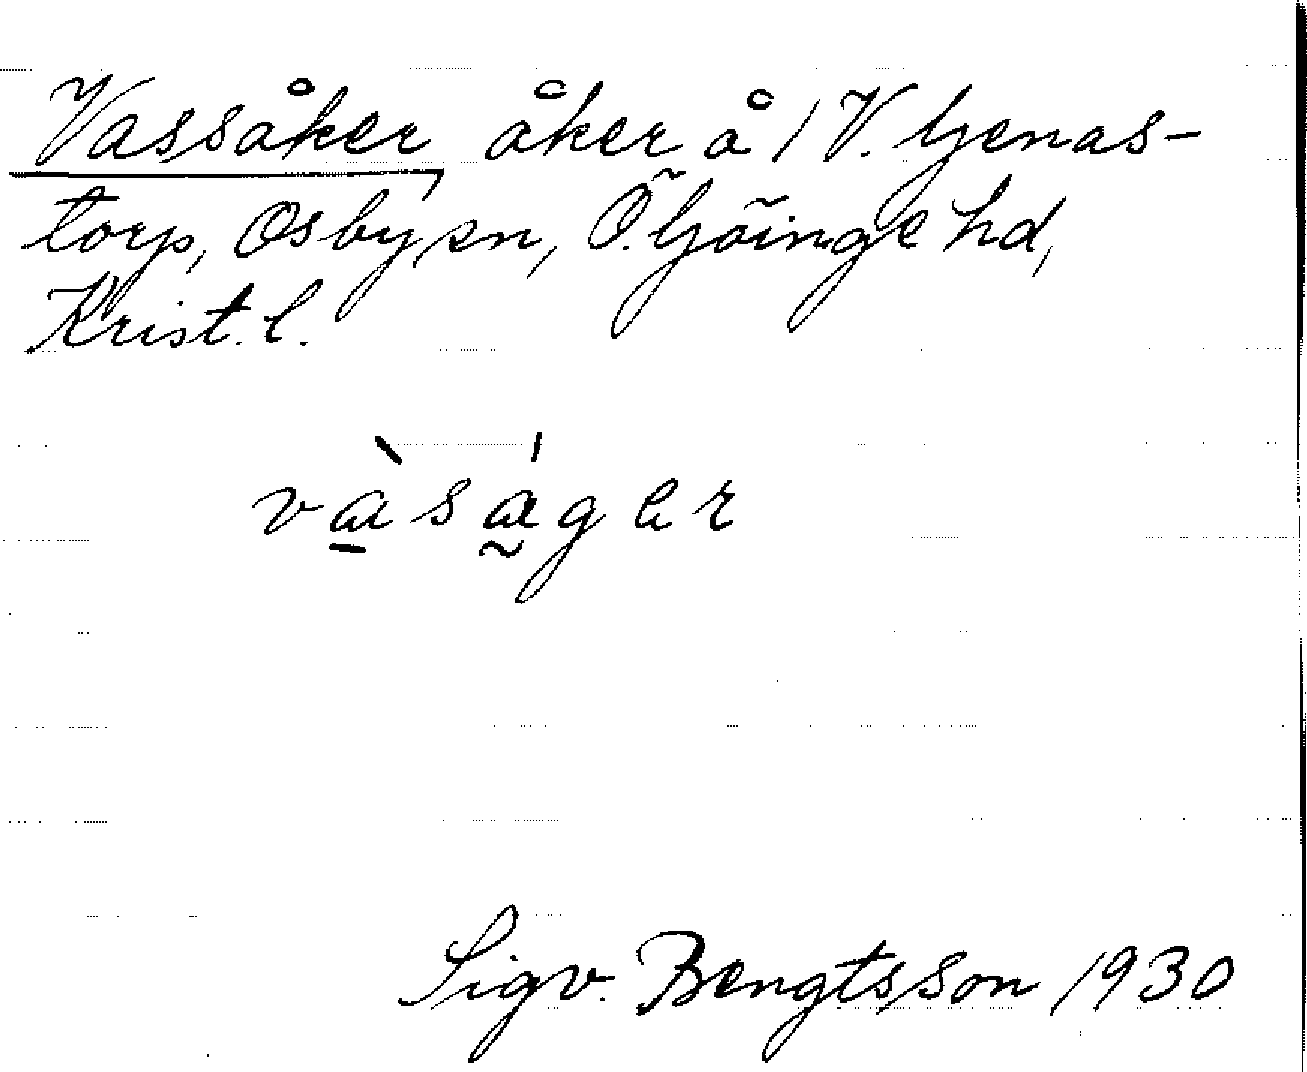 Vassåker, åker å 1 V. Genas-
torp, Osby sn, Ö. Göinge hd,
Krist. l.
vàságer
Sigv. Bengtsson 1930